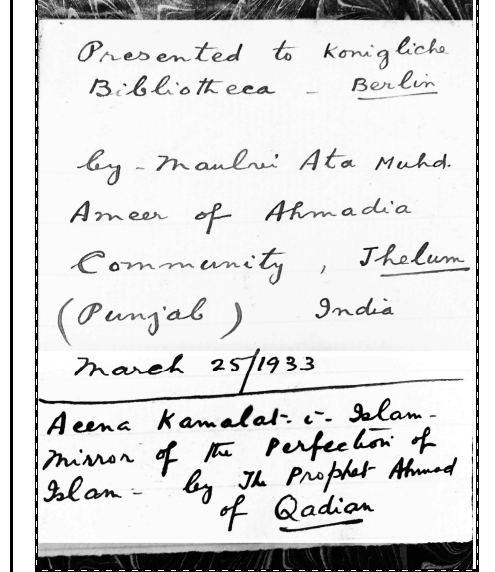 Presented to Konigliche
Bibliotheca - Berlin
by - Maulvi Ata Muhd.
Ameer of Ahmadia
Community, Jhelum
(Punjab) India
March 25/1933
Aeena Kamalat-i-Islam-
Mirror of the Perfection of
Islam - by The Prophet Ahmad
of Qadian